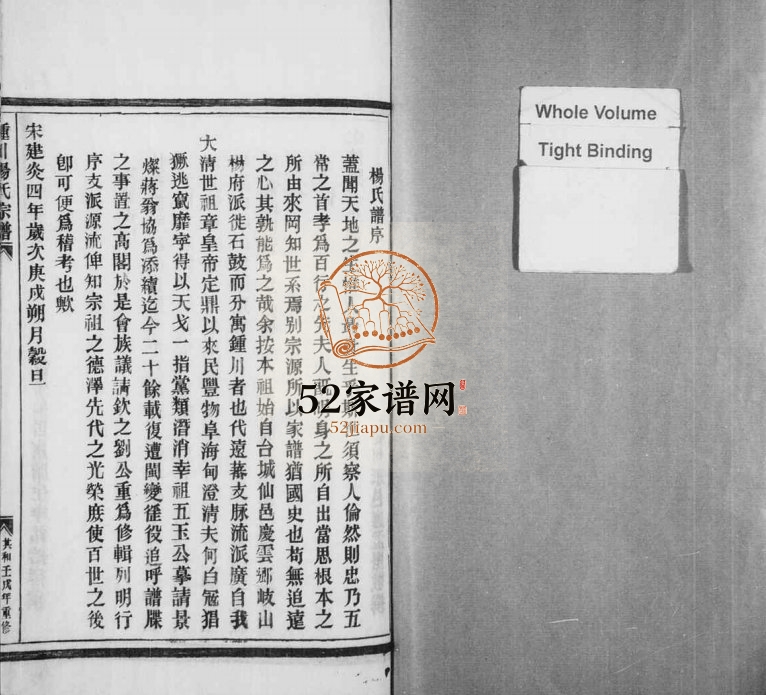 楊氏譜序
蓋聞天地之生惟人須察人倫然則忠乃五
常之首孝爲百行之先夫人身之所自出當思根本之
所由來罔知世系焉別宗源所以家譜猶國史也苟無追遠
之心其孰能爲之哉余按本祖始自台城仙邑慶雲鄉岐山
楊府派徙石鼓而分寓鍾川者也代遠蕃支脉流派廣自我
大清世祖章皇帝定鼎以來民豐物阜海甸澄清夫何白冦猖
獗逃竄靡寧得以天戈一指黨類潛消幸祖五玉公摹請景
燦蔣翁協爲添續迄今二十餘載復遭閩變徭役追呼譜牒
之事置之高閣於是會族議請欽之劉公重爲修輯列明行
序支派源流俾知宗祖之德澤先代之光榮庻使百世之後
卽可便爲稽考也歟
宋建炎四年歲次庚戌朔月穀旦
鍾川楊氏宗譜
共和壬戌年重修
Whole Volume
Tight Binding
52家谱网
52jiapu.com